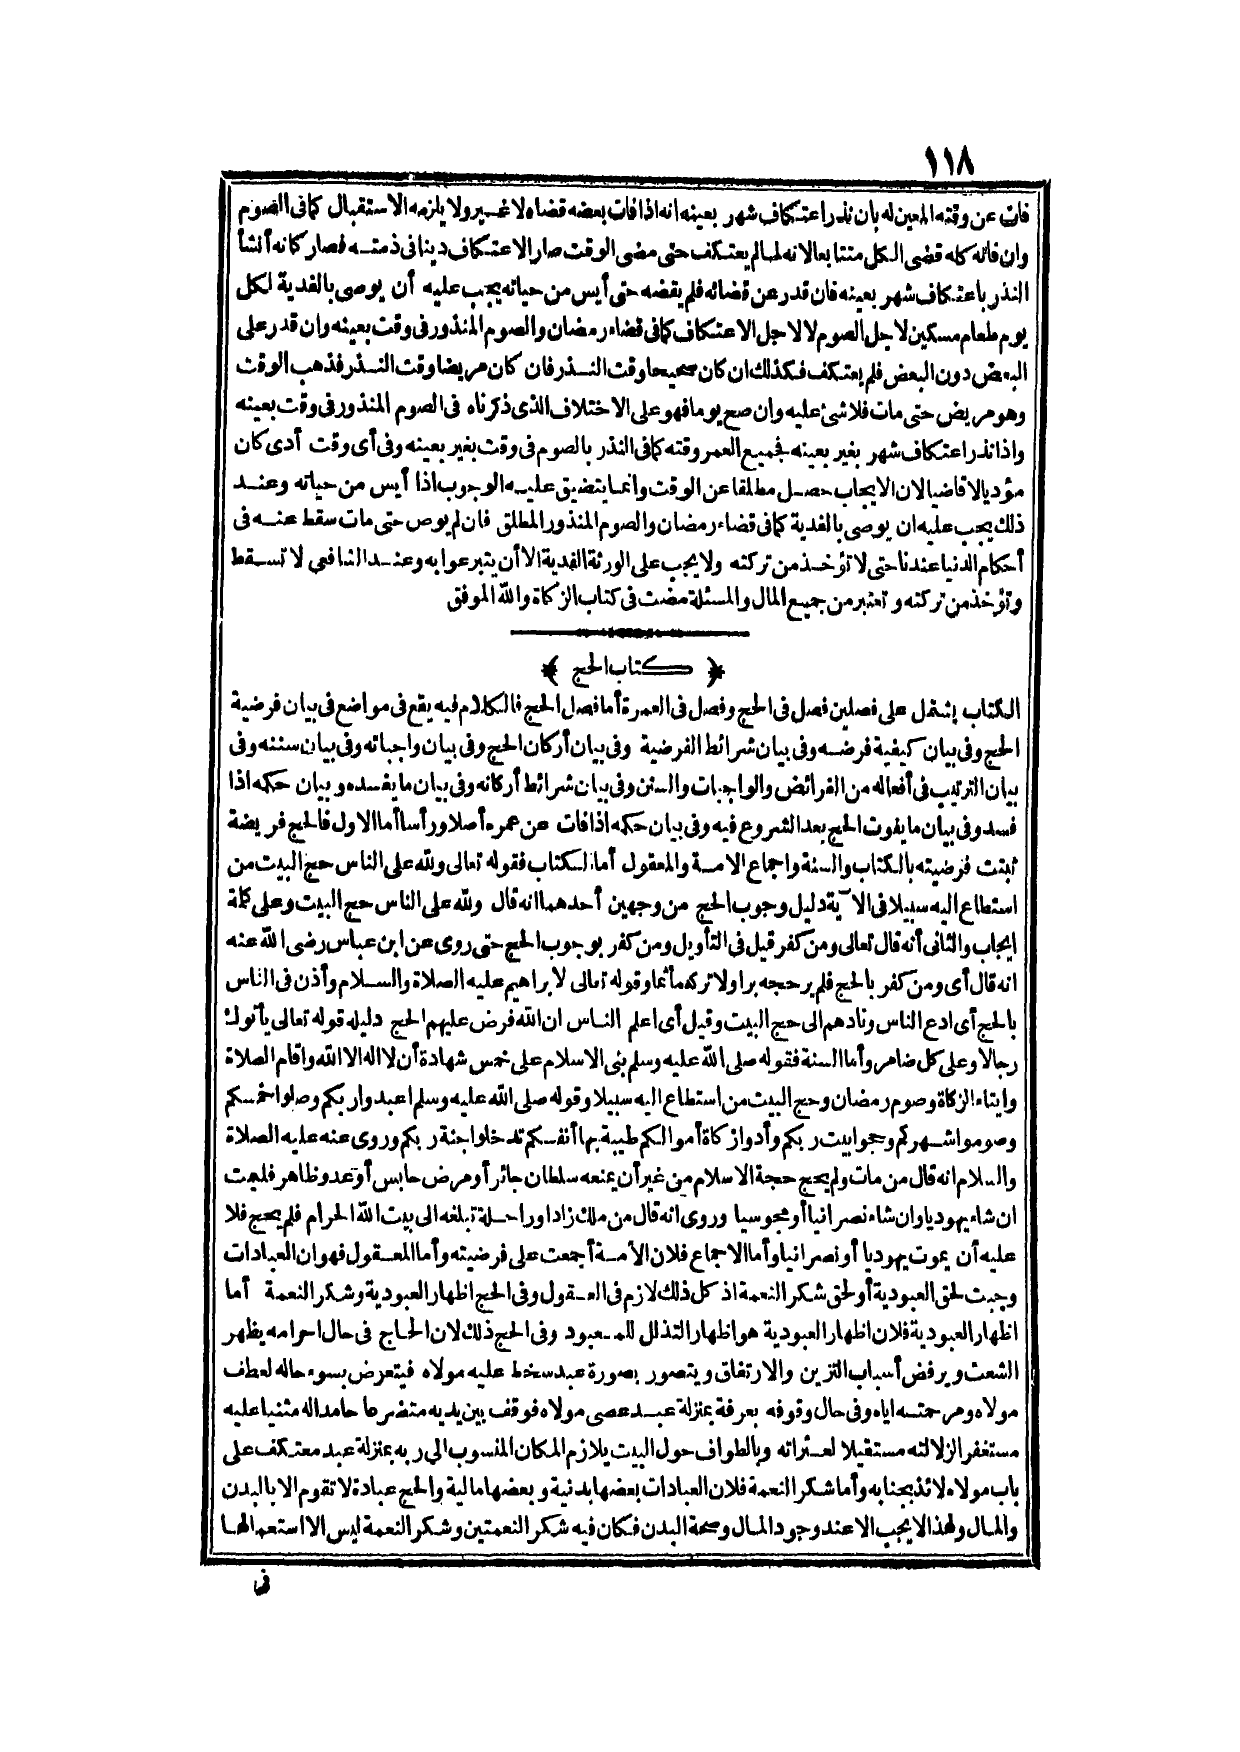 ١١٨
فات عن وقته المعين له بان نذر اعتكاف شهر بعينه انه اذا فات بعضه قضاه لا غير ولا يلزمه الاستقبال كما فى الصوم
وان فاته كله قضى الكل متتابعا لانه لما لم يعتكف حتى مضى الوقت صار الاعتكاف دينا فى ذمته فصار كانه أنشأ
النذر باعتكاف شهر بعينه فان قدر عن قضائه فلم يقضه حتى أيس من حياته يجب عليه أن يوصى بالفدية لكل
يوم طعام مسكين لاجل الصوم لا لاجل الاعتكاف كما فى قضاء رمضان والصوم المنذور فى وقت بعينه وان قدر على
البعض دون البعض فلم يعتكف فكذلك ان كان صحيحا وقت النذر فان كان مريضا وقت النذر فذهب الوقت
وهو مريض حتى مات فلا شئ عليه وان صح يوما فهو على الاختلاف الذى ذكرناه فى الصوم المنذور فى وقت بعينه
واذا نذر اعتكاف شهر بغير بعينه فجميع العمر وقته كما فى النذر بالصوم فى وقت بغير بعينه وفى أى وقت أدى كان
مؤديا لا قاضيا لان الايجاب حصل مطلقا عن الوقت وانما يتضيق عليه الوجوب اذا أيس من حياته وعند
ذلك يجب عليه ان يوصى بالفدية كما فى قضاء رمضان والصوم المنذور المطلق فان لم يوص حتى مات سقط عنه فى
أحكام الدنيا عندنا حتى لا تؤخذ من تركته ولا يجب على الورثة الفدية الا أن يتبرعوا به وعند الشافعى لا تسقط
وتؤخذ من تركته وتعتبر من جميع المال والمسئلة مضت فى كتاب الزكاة والله الموفق
﴿ كتاب الحج ﴾
الكتاب يشتمل على فصلين فصل فى الحج وفصل فى العمرة أما فصل الحج فالكلام فيه يقع فى مواضع فى بيان فرضية
الحج وفى بيان كيفية فرضه وفى بيان شرائط الفرضية وفى بيان أركان الحج وفى بيان واجباته وفى بيان سننه وفى
بيان الترتيب فى أفعاله من الفرائض والواجبات والسنن وفى بيان شرائط أركانه وفى بيان ما يفسده وبيان حكمه اذا
فسد وفى بيان ما يفوت الحج بعد الشروع فيه وفى بيان حكمه اذا فات عن عمره أصلا ورأسا أما الاول فالحج فريضة
ثبتت فرضيته بالكتاب والسنة واجماع الامة والمعقول أما الكتاب فقوله تعالى ولله على الناس حج البيت من
استطاع اليه سبيلا فى الآية دليل وجوب الحج من وجهين أحدهما انه قال ولله على الناس حج البيت وعلى كلمة
ايجاب والثانى أنه قال تعالى ومن كفر قيل فى التأويل ومن كفر بوجوب الحج حتى روى عن ابن عباس رضى الله عنه
انه قال أى ومن كفر بالحج فلم ير حجه برا ولا تركه مأثما وقوله تعالى لابراهيم عليه الصلاة والسلام وأذن فى الناس
بالحج أى ادع الناس ونادهم الى حج البيت وقيل أى اعلم الناس ان الله فرض عليهم الحج دليله قوله تعالى يأتوك
رجالا وعلى كل ضامر وأما السنة فقوله صلى الله عليه وسلم بنى الاسلام على خمس شهادة أن لا اله الا الله واقام الصلاة
وايتاء الزكاة وصوم رمضان وحج البيت من استطاع اليه سبيلا وقوله صلى الله عليه وسلم اعبدوا ربكم وصلوا خمسكم
وصوموا شهركم وحجوا بيت ربكم وأدوا زكاة أموالكم طيبة بها أنفسكم تدخلوا جنة ربكم وروى عنه عليه الصلاة
والسلام انه قال من مات ولم يحج حجة الاسلام من غير أن يمنعه سلطان جائر أو مرض حابس أو عدو ظاهر فليمت
ان شاء يهوديا وان شاء نصرانيا أو مجوسيا وروى انه قال من ملك زادا وراحلة تبلغه الى بيت الله الحرام فلم يحج فلا
عليه أن يموت يهوديا أو نصرانيا وأما الاجماع فلان الأمة أجمعت على فرضيته وأما المعقول فهو ان العبادات
وجبت لحق العبودية أو لحق شكر النعمة اذ كل ذلك لازم فى العقول وفى الحج اظهار العبودية وشكر النعمة أما
اظهار العبودية فلان اظهار العبودية هو اظهار التذلل للمعبود وفى الحج ذلك لان الحاج فى حال احرامه يظهر
الشعث ويرفض أسباب التزين والارتفاق ويتصور بصورة عبد سخط عليه مولاه فيتعرض بسوء حاله لعطف
مولاه ومرحمته اياه وفى حال وقوفه بعرفة بمنزلة عبد عصى مولاه فوقف بين يديه متضرعا حامدا له مثنيا عليه
مستغفرا لزلاته مستقيلا لعثراته وبالطواف حول البيت يلازم المكان المنسوب الى ربه بمنزلة عبد معتكف على
باب مولاه لائذ بجنابه وأما شكر النعمة فلان العبادات بعضها بدنية وبعضها مالية والحج عبادة لا تقوم الا بالبدن
والمال ولهذا لا يجب الا عند وجود المال وصحة البدن فكان فيه شكر النعمتين وشكر النعمة ليس الا استعمالها
فى